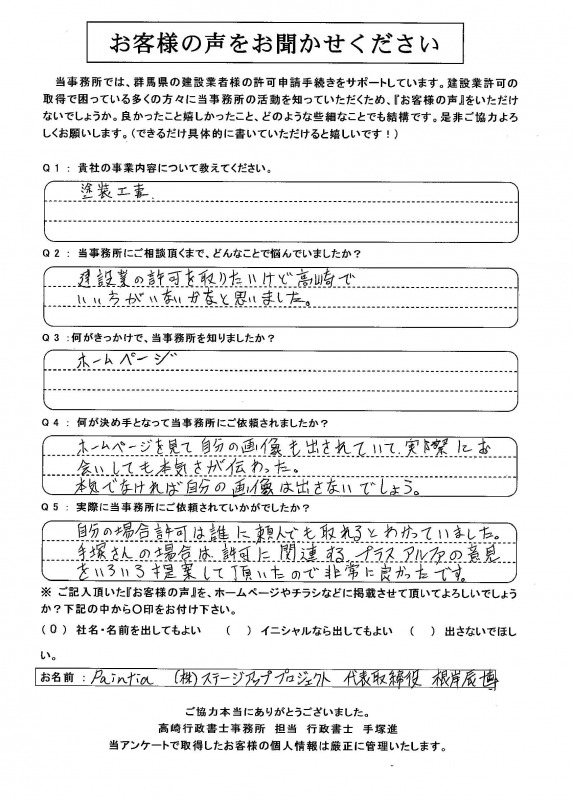 お客様の声をお聞かせください
当事務所では、群馬県の建設業者様の許可申請手続きをサポートしています。建設業許可の
取得で困っている多くの方々に当事務所の活動を知っていただくため、『お客様の声』をいただけ
ないでしょうか。良かったこと嬉しかったこと、どのような些細なことでも結構です。是非ご協力よろ
しくお願いします。(できるだけ具体的に書いていただけると嬉しいです!)
Q1：貴社の事業内容について教えてください。
塗装工事.
Q2：当事務所にご相談頂くまで、どんなことで悩んでいましたか?
建設業の許可を取りたいけど高崎で
いい がいないかなと思いました。
Q3：何がきっかけで、当事務所を知りましたか?
ホームページ
Q4：何が決め手となって当事務所にご依頼されましたか?
ホームページを見て自分の画像も出されていて.実際にお
会いしても本気さが伝わった。
本気でなければ自分の画像は出さないでしょう。
Q5：実際に当事務所にご依頼されていかがでしたか?
自分の場合許可は誰に頼んでも取れるとわかっていました。
手塚さんの場合は.許可に関連する.プラスアルファの意見
をいろいろ提案して頂いたので非常に良かったです。
※ ご記入頂いた『お客様の声』を、ホームページやチラシなどに掲載させて頂いてよろしいでしょう
か?下記の中から〇印をお付け下さい。
(〇) 社名・名前を出してもよい ( ) イニシャルなら出してもよい ( ) 出さないでほし
い。
お名前： Paintia (株)ステージアッププロジェクト 代表取締役 根岸辰博
ご協力本当にありがとうございました。
高崎行政書士事務所 担当 行政書士 手塚進
当アンケートで取得したお客様の個人情報は厳正に管理いたします。